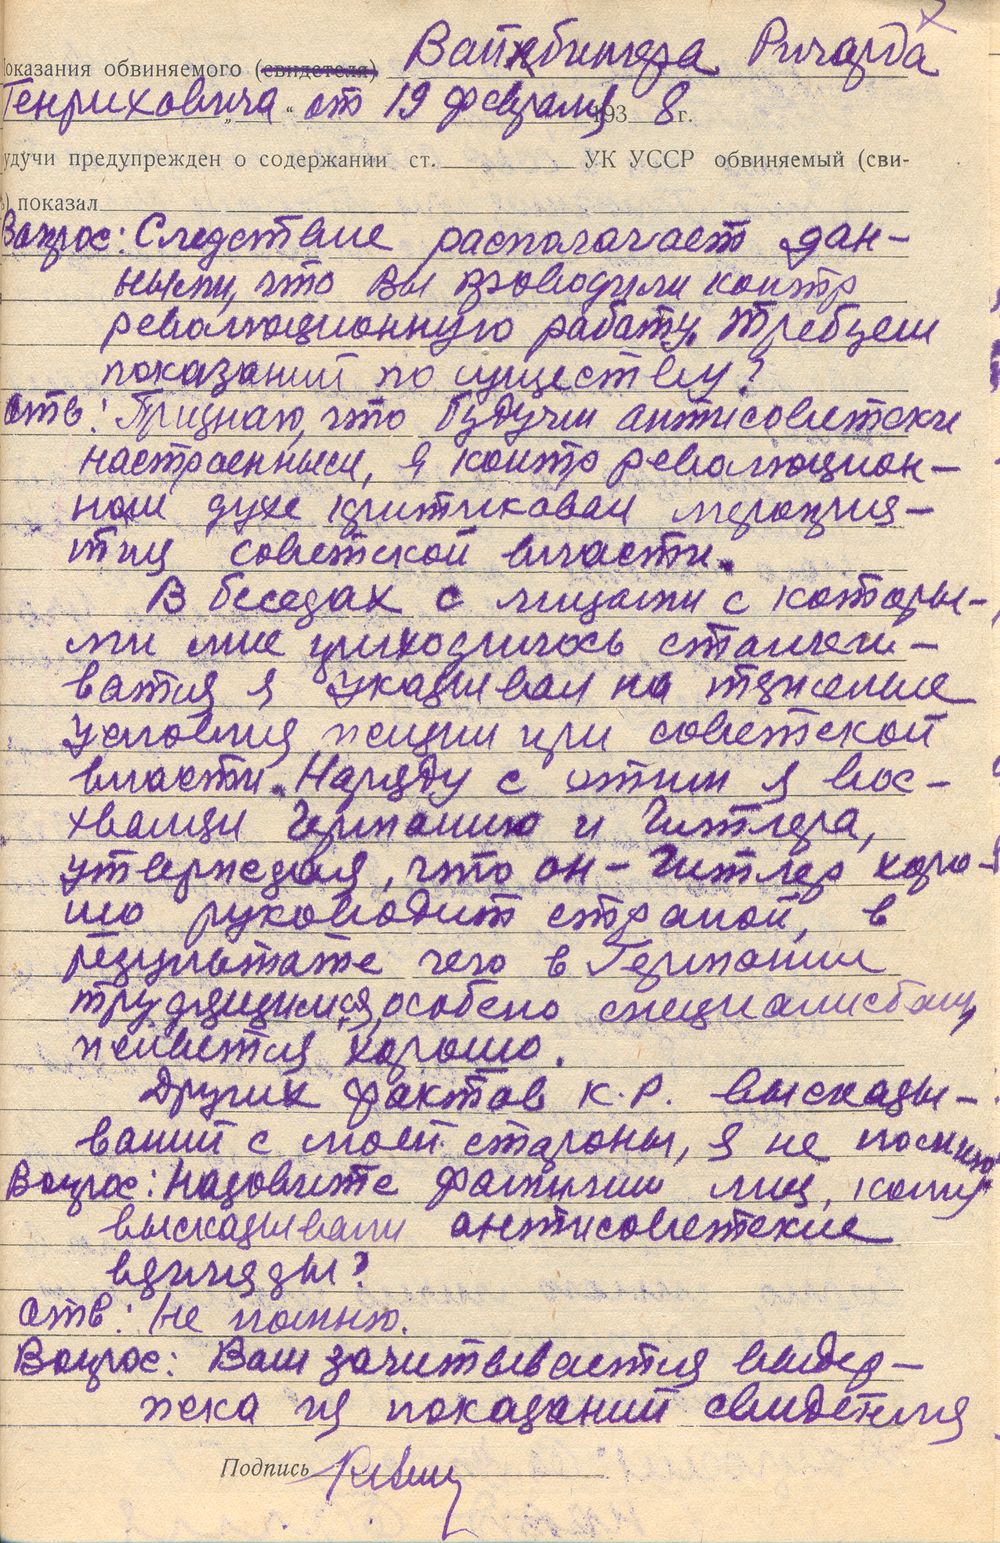 оказания обвиняемого (свидетеля) Вайнбингера Ричарда
Генриховича "от 19 февраля 1938 г.
удучи предупрежден о содержании ст. УК УССР обвиняемый (сви-
) показал
Вопрос: Следствие располагает дан-
ными, что Вы проводили контр
революционную работу. Требуем
показаний по существу?
Отв: Признаю, что будучи антисоветски
настроенным, я контрреволюцион-
ном духе критиковал мероприя-
тия советской власти.
В беседах с лицами с которы-
ми мне приходилось сталки-
ватся я указывал на тяжелые
условия жизни при советской
власти. Наряду с этим я вос-
хвалял Германию и Гитлера,
утверждая, что он - Гитлер хоро-
шо руководит страной, в
результате чего в Германии
трудящимся, особено специалистам,
живется хорошо.
Других фактов к.р. высказы-
ваний с моей стороны, я не помню
Вопрос: Назовите фамилии лиц, кому
высказывали антисоветские
взгляды?
Отв: Не помню.
Вопрос: Вам зачитывается выдер-
жка из показаний свидетеля
Подпись